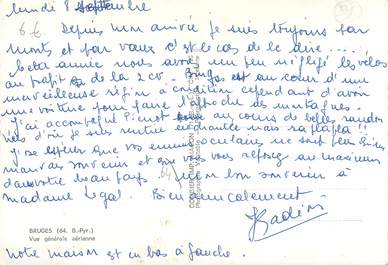 lundi 8 septembre
6€ Depuis mon arrivée je suis toujours par
monts et par vaux c'est le cas de le dire....
cette année nous avons un peu négligé les vélos
au profit de la 2 cv. Bruges est au cœur d'une
merveilleuse région à condition cependant d'avoir
une voiture pour faire l'approche des montagnes.
j'ai accompagné Pierrot au cours de belles randon
nées d'où je suis rentrée enchantée mais raplapla!!
j'ose espérer que vos ennuis oculaires ne sont plus qu'un
mauvais souvenir et que vous vous reposez au maximum
dans votre beau pays. 64 mon bon souvenir à
Madame Legal. Bien amicalement
BRUGES (64. B.-Pyr.)
Vue générale aérienne
notre maison est en bas à gauche.